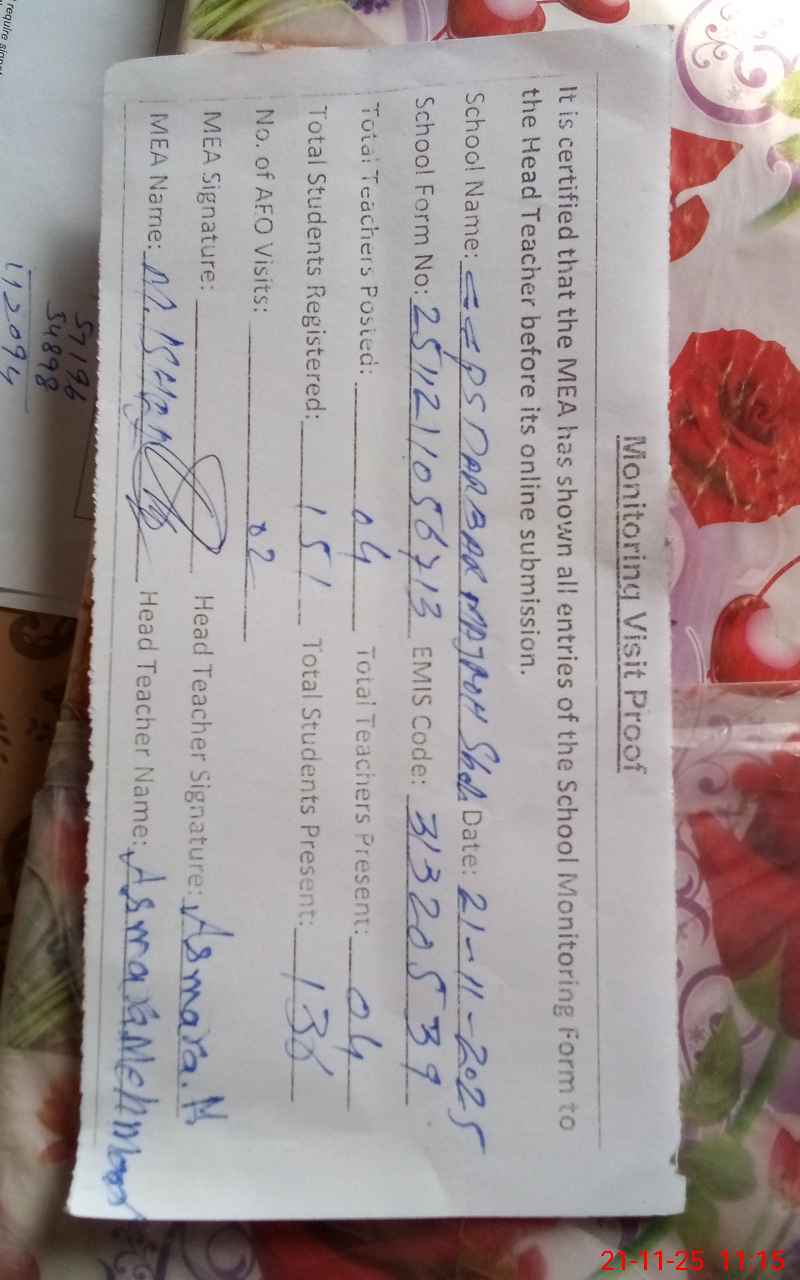 Monitoring Visit Proof
It is certified that the MEA has shown all entries of the School Monitoring Form to
the Head Teacher before its online submission.
School Name: GGPS DARBAR Date: 21-11-2025
School Form No: EMIS Code: 31320539
Total Teachers Posted: 04 Total Teachers Present: 04
Total Students Registered: 151 Total Students Present:
No. of AEO Visits: 02
MEA Signature: Head Teacher Signature: Asmara.M
MEA Name: Head Teacher Name: Asmara Mehmood
57196
54898
112094
require
21-11-25 11:15